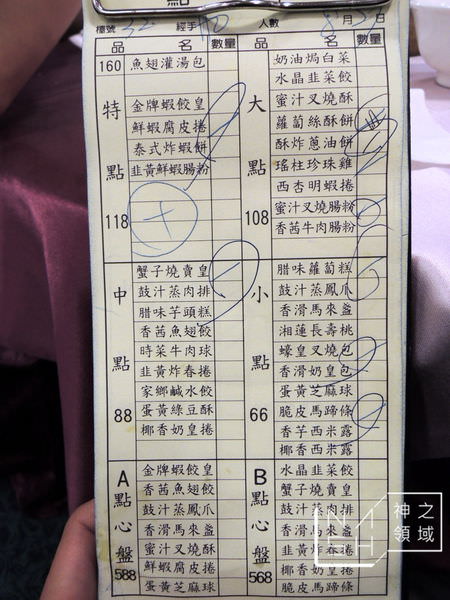 點
檯號 32 經手 人數 8月3日
品 名 數量
160 魚翅灌湯包
特點 118
金牌蝦餃皇
鮮蝦腐皮捲
泰式炸蝦餅
韭黃鮮蝦腸粉
中點 88
蟹子燒賣皇
鼓汁蒸肉排
腊味芋頭糕
香茜魚翅餃
時菜牛肉球
韭黃炸春捲
家鄉鹹水餃
蛋黃綠豆酥
椰香奶皇捲
A點心盤 588
金牌蝦餃皇
香茜魚翅餃
鼓汁蒸鳳爪
香滑馬來盏
蜜汁叉燒酥
蛋黃芝麻球
品 名 數量
大點 108
奶油焗白菜
水晶韭菜餃
蜜汁叉燒酥
蘿蔔絲酥餅
酥炸蔥油餅
瑤柱珍珠雞
西杏明蝦捲
蜜汁叉燒腸粉
香茜牛肉腸粉
小點 66
腊味蘿蔔糕
鼓汁蒸鳳爪
香滑馬來盏
湘蓮長壽桃
蠔皇叉燒包
香滑奶皇包
蛋黃芝麻球
脆皮馬蹄條
香芋西米露
椰香西米露
B點心盤 568
水晶韭菜餃
蟹子燒賣皇
鼓汁蒸肉排
香滑馬來盏
韭黃炸春捲
椰香奶皇捲
脆皮馬蹄條
神之領域